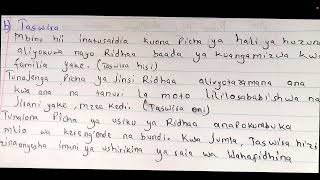 b) Taswira
Mbinu hii inatusaidia kuona Picha ya hali ya huzuni
aliyokuwa nayo Ridhaa baada ya kuangamizwa kwa
familia yake. (Taswira hisi)
Tunajenga Picha ya Jinsi Ridhaa alivyotazamana ana
kwa ana na tanuri la moto lililosababishwa na
Jirani yake, mzee Kedi. (Taswira oni)
Tunaiona Picha ya usiku ya Ridhaa anapokumbuka
mlio wa kereng'ende na bundi. Kwa Jumla, Taswira hizi
zinaonyesha imani ya ushirikina ya raia wa Wahafidhina